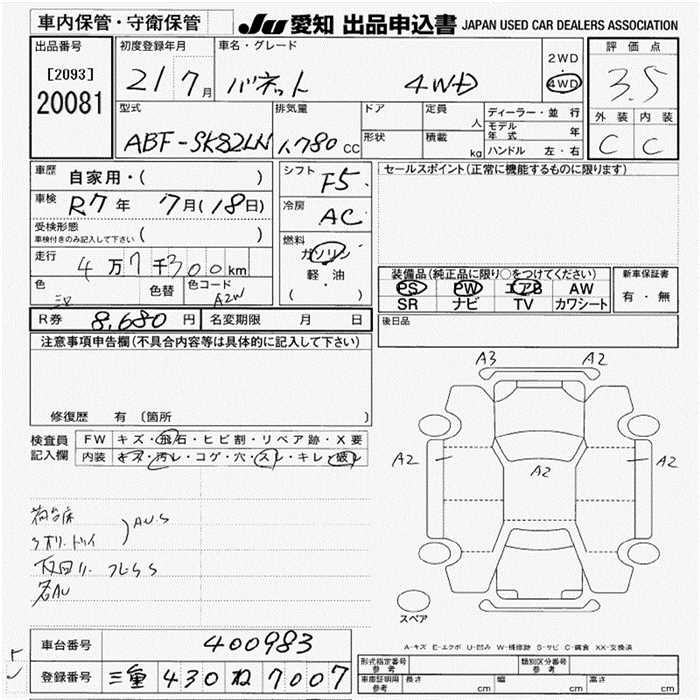 車内保管・守衛保管
JU 愛知 出品申込書 JAPAN USED CAR DEALERS ASSOCIATION
出品番号
[2093]
20081
初度登録年月
21 7月
車名・グレード
バネット 4WD
2WD
4WD
評価点
3.5
外装 内装
C C
型式
ABF-SK82LN
排気量
1,780 CC
ドア
形状
定員
人
積載
kg
ディーラー・並行
モデル年式 年
ハンドル 左・右
車歴
自家用・( )
車検
R7年 7月(18日)
受検形態
車検付きのみ記入して下さい ( )
走行
4万7千300km
色
色替
色コード
A2W
シフト
F5
冷房
AC
燃料
ガソリン
軽・油
( ・ )
セールスポイント(正常に機能するものに限ります)
装備品(純正品に限り○をつけてください)
PS PW エアB AW
SR ナビ TV カワシート
新車保証書
有・無
R券 8,680円
名変期限 月 日
後日品
注意事項申告欄(不具合内容等は具体的に記入して下さい)
修復歴 有(箇所 )
検査員記入欄
FW キズ・飛石・ヒビ割・リペア跡・X要
内装 キズ・汚レ・コゲ・穴・スレ・キレ・破レ
荷台床
AUS
A3 A2
A2 A2 A2
スペア
A-キズ E-エクボ U-凹み W-補修跡 S-サビ C-腐食 XX-交換済
車台番号 400983
登録番号 三重 430 ね 7007
形式指定番号 参考
類別区分番号 参考
車庫証明用 参考
長さ cm 幅 cm 高さ cm